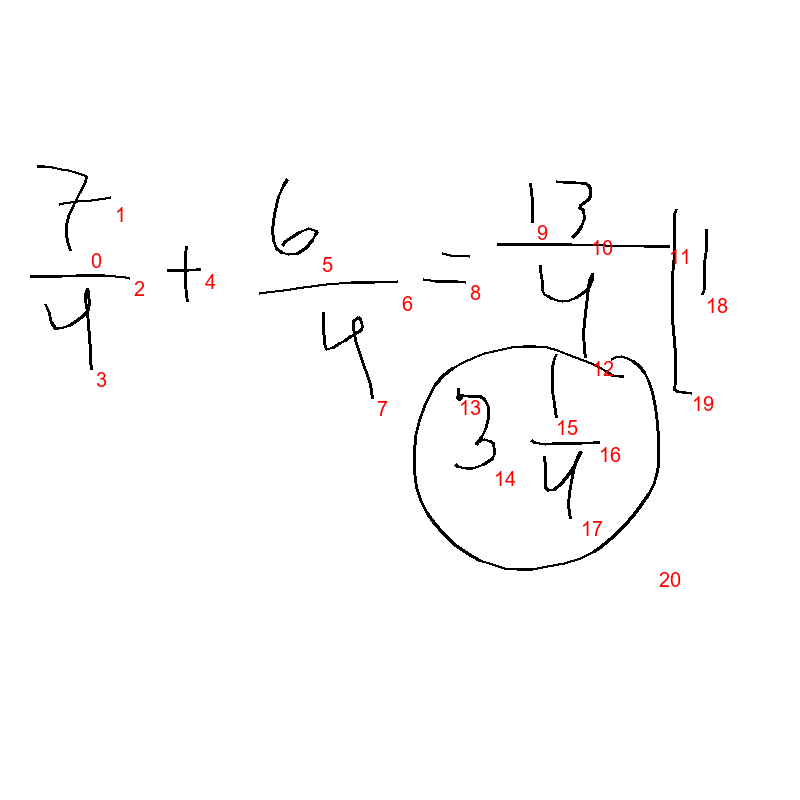 7/4 + 6/4 = 13/4
3 1/4
0
1
2
3
4
5
6
7
8
9
10
11
12
13
14
15
16
17
18
19
20